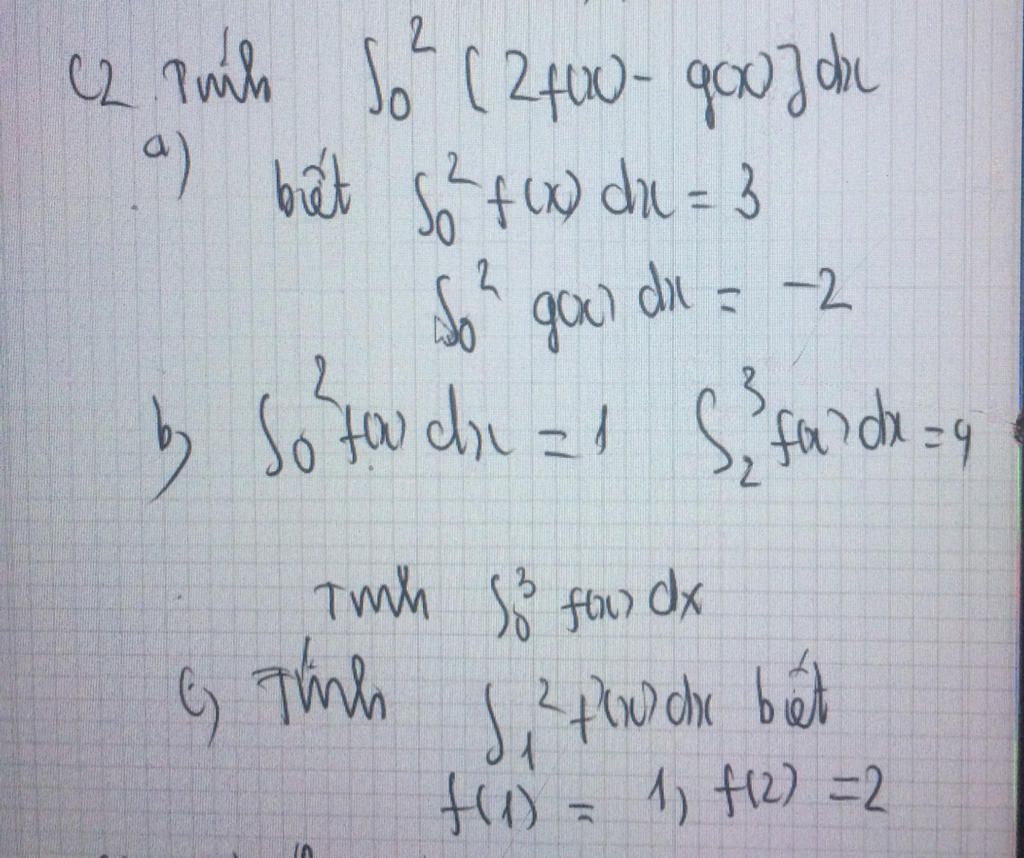 C2. Tính ∫₀² [2f(x) - g(x)]dx
a)
biết ∫₀² f(x) dx = 3
∫₀² g(x) dx = -2
b) ∫₀² f(x) dx = 1 ∫₂³ f(x) dx = 9
Tính ∫₀³ f(x) dx
c) Tính ∫₁² f'(x) dx biết
f(1) = 1, f(2) = 2